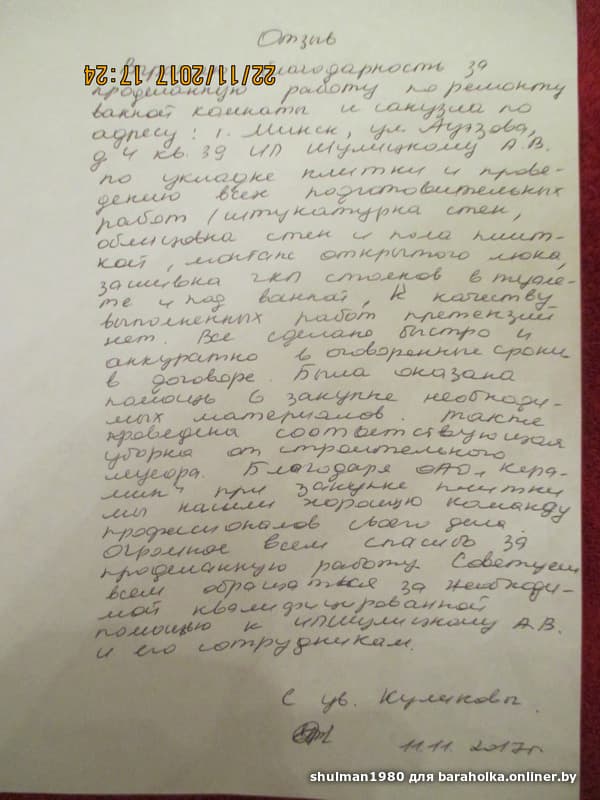 Отзыв
Выражаю благодарность за
22/11/2017 17:24
проделанную работу по ремонту
ванной комнаты и санузла по
адресу: г. Минск, ул. Ауэзова,
д 4 кв. 39 ИП Шулицкому А.В.
по укладке плитки и прове-
дению всех подготовительных
работ (штукатурка стен,
облицовка стен и пола плит-
кой, монтаж открытого люка,
зашивка гкл стояков в туале-
те и под ванной, К качеству
выполненных работ претензий
нет. Все сделано быстро и
аккуратно в оговоренные сроки
в договоре. Была оказана
помощь в закупке необходи-
мых материалов. также
проведена соответствующая
уборка от строительного
мусора. Благодаря ОАО „Кера-
мин" при закупке плитки
мы нашли хорошую команду
профессионалов своего дела
Огромное всем спасибо за
проделанную работу. Советуем
всем обращаться за необходи-
мой квалифицированной
помощью к ИП Шулицкому А.В.
и его сотрудникам.
С ув. Куликовы.
11.11.2017г.
shulman1980 для baraholka.onliner.by